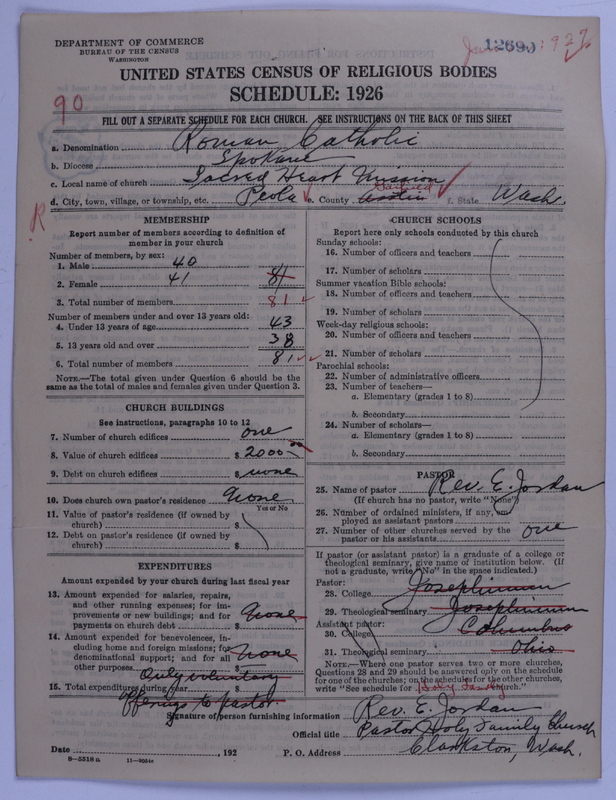 DEPARTMENT OF COMMERCE
BUREAU OF THE CENSUS
WASHINGTON
12690
1927
UNITED STATES CENSUS OF RELIGIOUS BODIES
SCHEDULE: 1926
90
FILL OUT A SEPARATE SCHEDULE FOR EACH CHURCH. SEE INSTRUCTIONS ON THE BACK OF THIS SHEET
a. Denomination Roman Catholic
b. Diocese Spokane
c. Local name of church Sacred Heart Mission
d. City, town, village, or township, etc. Peola e. County Asotin Garfield f. State Wash.
R
MEMBERSHIP
Report number of members according to definition of member in your church
Number of members, by sex:
1. Male 40
2. Female 41 81
3. Total number of members 81
Number of members under and over 13 years old:
4. Under 13 years of age 43
5. 13 years old and over 38
6. Total number of members 81
NOTE.—The total given under Question 6 should be the
same as the total of males and females given under Question 3.
CHURCH BUILDINGS
See instructions, paragraphs 10 to 12
7. Number of church edifices one
8. Value of church edifices $ 2000 00
9. Debt on church edifices $ none
10. Does church own pastor's residence? None
Yes or No
11. Value of pastor's residence (if owned by
church) $
12. Debt on pastor's residence (if owned by
church) $
EXPENDITURES
Amount expended by your church during last fiscal year
13. Amount expended for salaries, repairs,
and other running expenses; for im-
provements or new buildings; and for
payments on church debt $ None
14. Amount expended for benevolences, in-
cluding home and foreign missions; for
denominational support; and for all
other purposes $ None
Only voluntary
15. Total expenditures during year $
offerings to pastor.
CHURCH SCHOOLS
Report here only schools conducted by this church
Sunday schools:
16. Number of officers and teachers
17. Number of scholars
Summer vacation Bible schools:
18. Number of officers and teachers
19. Number of scholars
Week-day religious schools:
20. Number of officers and teachers
21. Number of scholars
Parochial schools:
22. Number of administrative officers
23. Number of teachers—
a. Elementary (grades 1 to 8)
b. Secondary
24. Number of scholars—
a. Elementary (grades 1 to 8)
b. Secondary
PASTOR
25. Name of pastor Rev. E. Jordan
(If church has no pastor, write "None")
26. Number of ordained ministers, if any, em-
ployed as assistant pastors
27. Number of other churches served by the
pastor or his assistants one
If pastor (or assistant pastor) is a graduate of a college or
theological seminary, give name of institution below. (If
not a graduate, write "No" in the space indicated.)
Pastor:
28. College Josephinum
29. Theological seminary Josephinum
Assistant pastor:
30. College Columbus
31. Theological seminary Ohio
NOTE.—Where one pastor serves two or more churches,
Questions 28 and 29 should be answered only on the schedule
for one of the churches; on the schedule for the other churches,
write "See schedule for Holy Family church."
Signature of person furnishing information Rev. E. Jordan
Official title Pastor Holy Family Church
Date , 192 P. O. Address Clarkston, Wash.
8—5518 a 11—9054